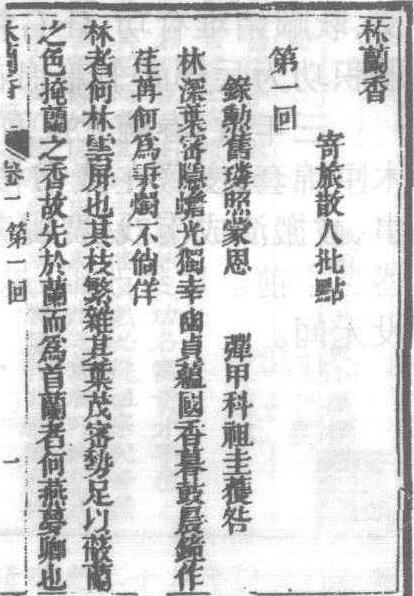 林蘭香
寄旅散人批點
第一回
錄勲舊璘照蒙恩　彈甲科祖圭獲咎
林深葉密隱蟾光獨幸幽貞蘊國香暮鼓晨鐘作
荏苒何為燭不倘佯
林者何林雲屏也其枝繁雜其葉茂密勢足以蔽蘭
之色掩蘭之香故先於蘭而為首蘭者何燕夢卿也
林蘭香 卷一 第一回 一